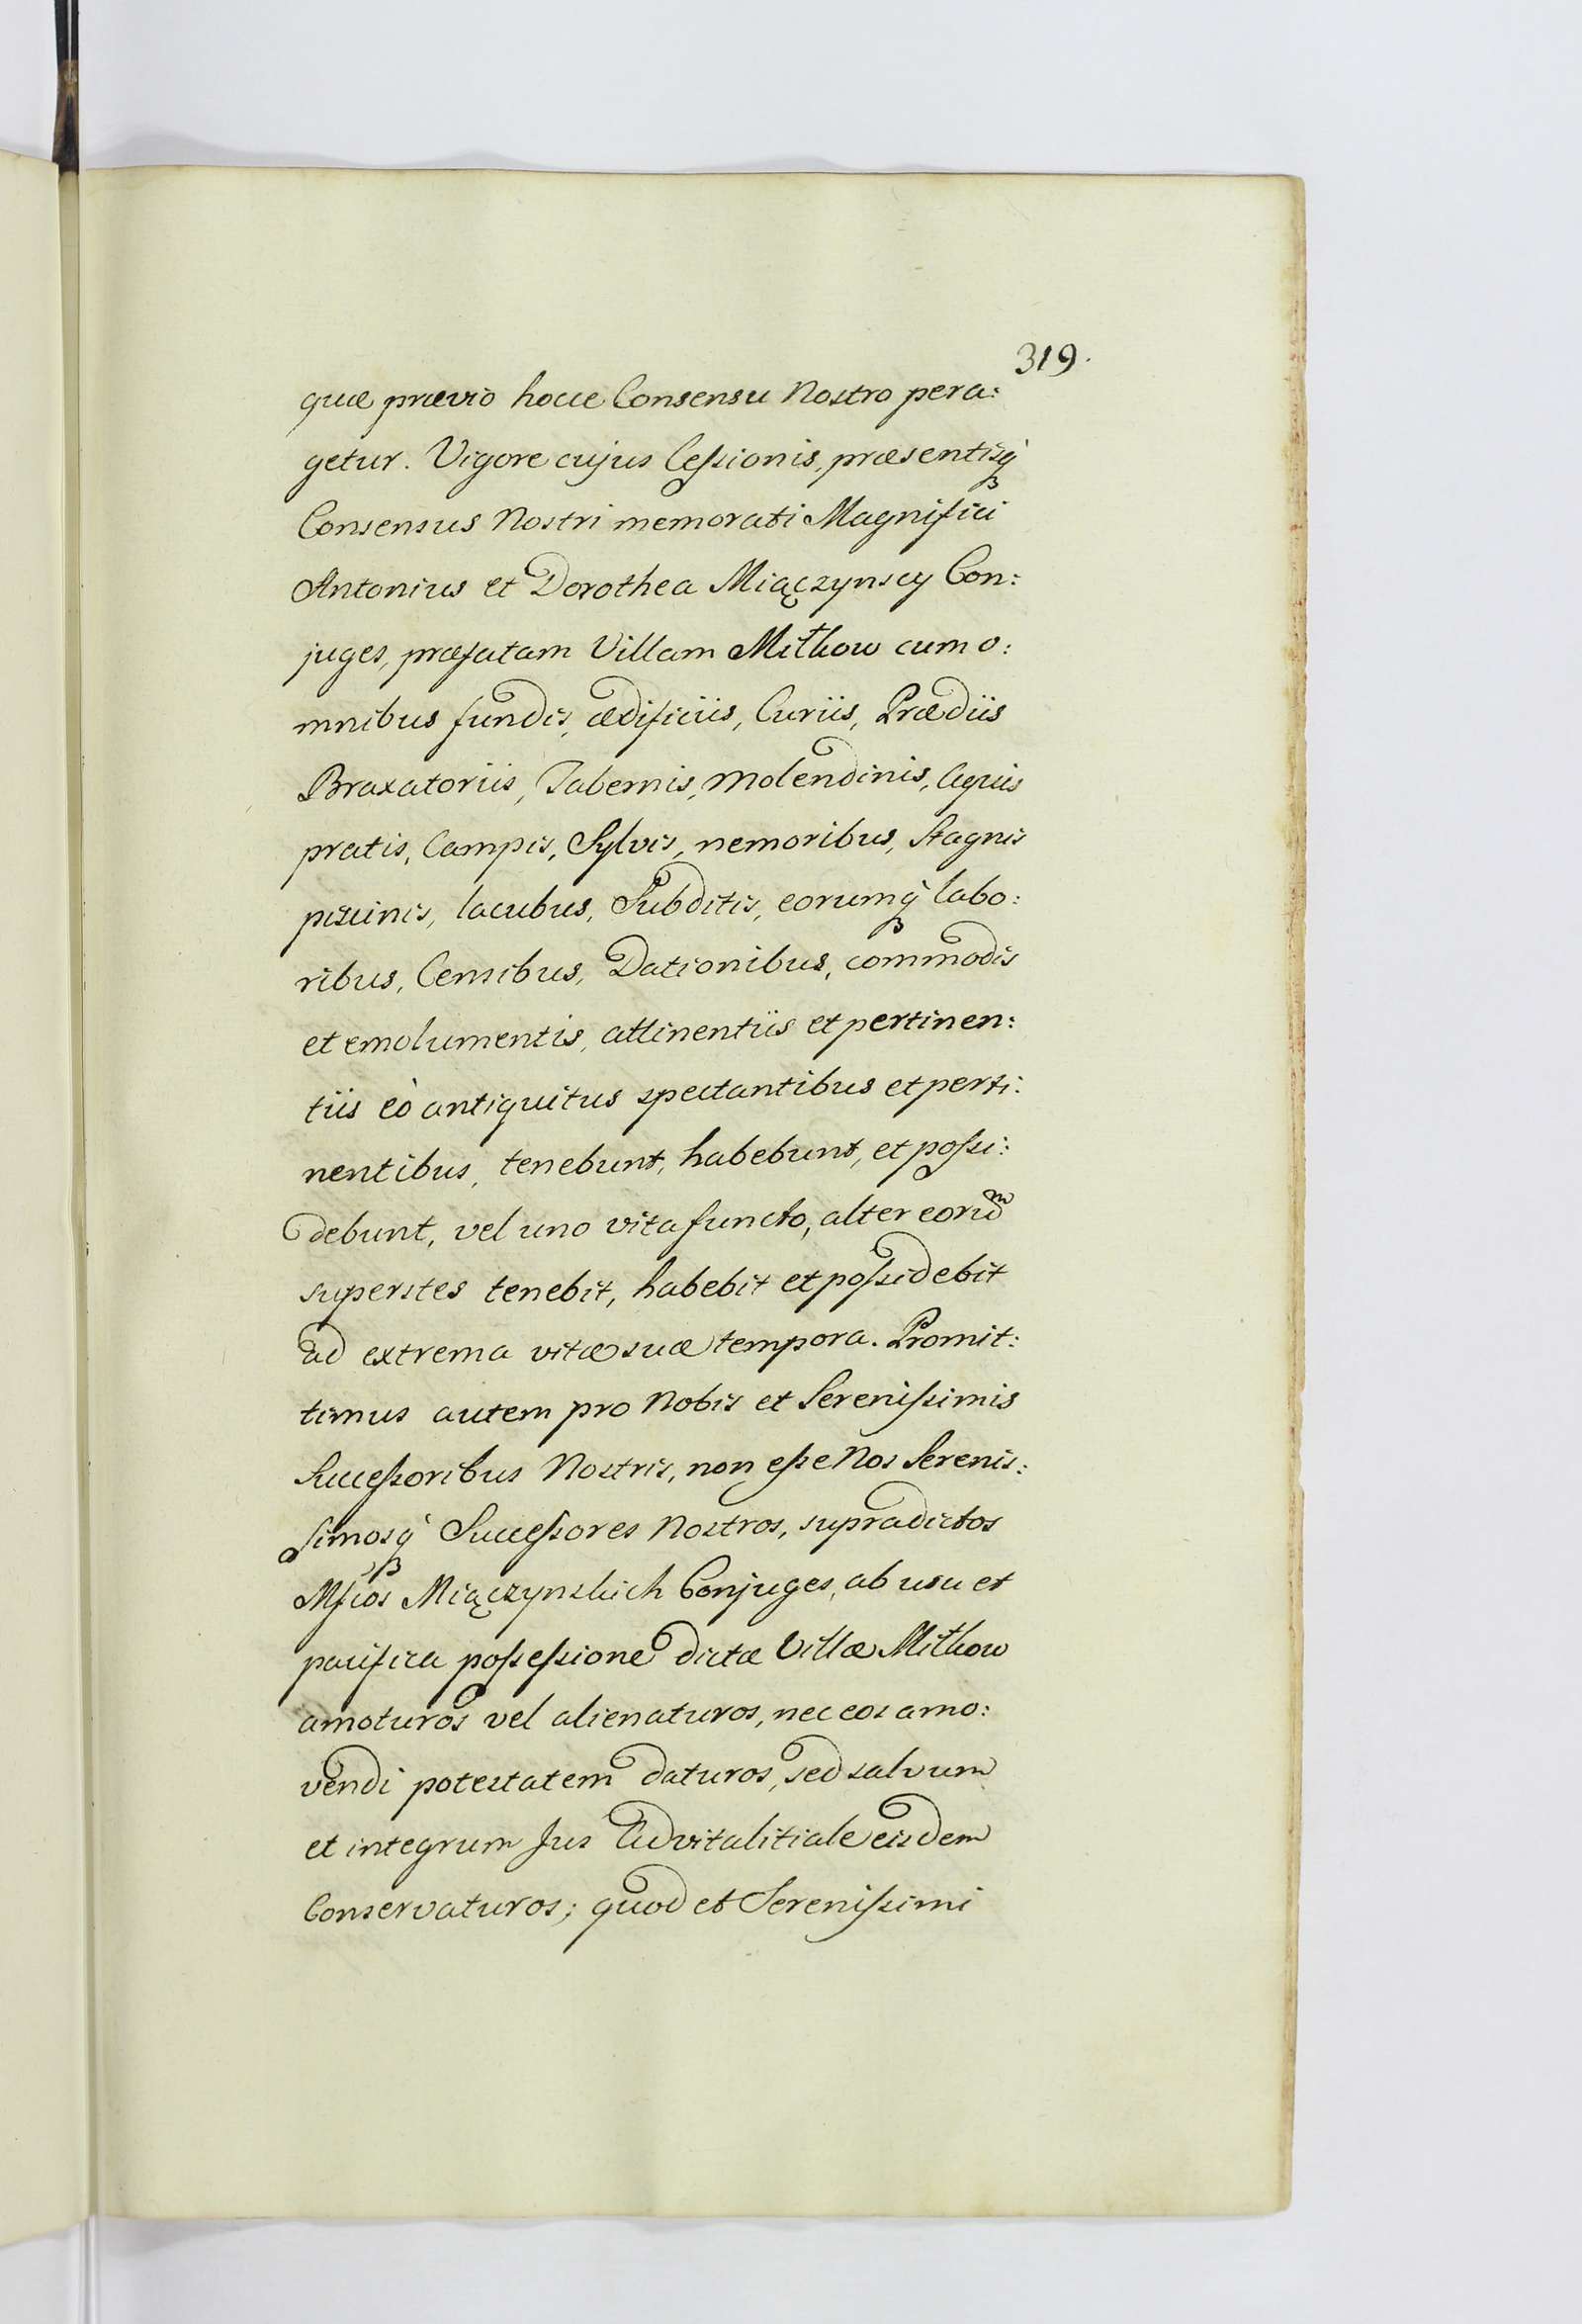 319.
quæ prævio hocce Consensu Nostro pera:
getur. Vigore cujus Cessionis, præsentisq́ꝫ
Consensus Nostri memorati Magnifici
Antonius et Dorothea Miączynscy Con:
juges, præfatam Villam Mitkow cum o:
mnibus fundis, ædificiis, Curiis, Prædiis
Braxatoriis, Tabernis, Molendinis, Aquis
pratis, Campis, Sylvis, nemoribus, Stagnis
piscinis, lacubus, Subditis, eorumq́ꝫ labo:
ribus, Censibus, Dationibus, commodis
et emolumentis, attinentiis et pertinen:
tiis eò antiquitus spectantibus et perti:
nentibus, tenebunt, habebunt, et possi:
debunt, vel uno vita functo, alter eoruᵐ
superstes tenebit, habebit et possidebit
ad extrema vitæ suæ tempora. Promit:
timus autem pro Nobis et Serenissimis
Successoribus Nostris, non esse Nos Serenis:
simosq́ꝫ Successores Nostros, supradictos
Mficos Miączynskich Conjuges, ab usu et
pacifica possessione dictæ Villæ Mitkow
amoturos vel alienaturos, nec eos amo:
vendi potestatem daturos, sed salvum
et integrum Jus Advitalitiale eisdem
Conservaturos; quod et Serenissimi